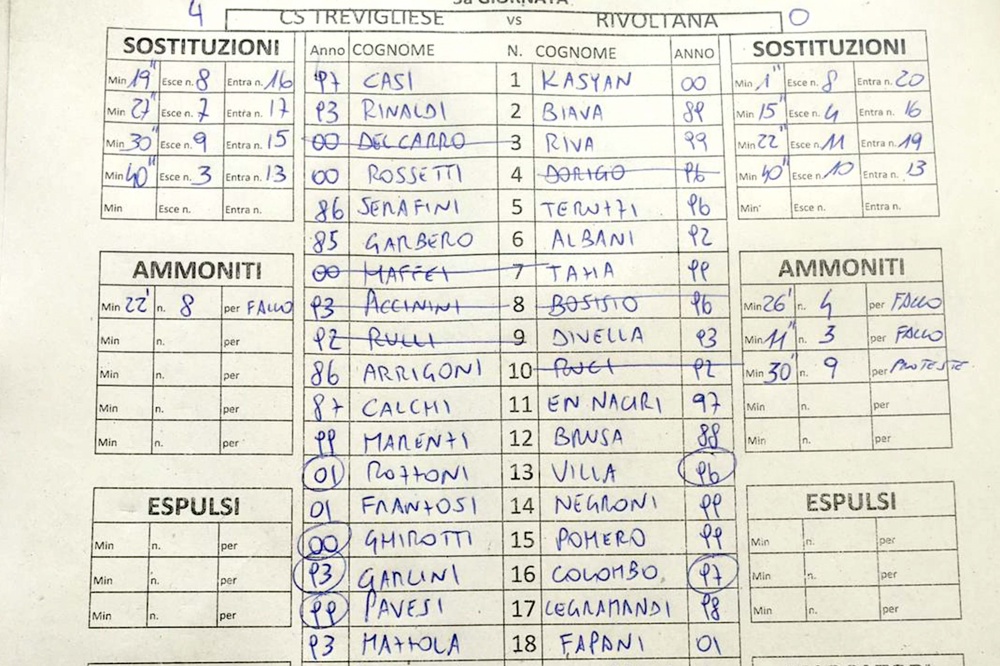 4 CS TREVIGLIESE vs RIVOLTANA 0
SOSTITUZIONI
Min 19" Esce n. 8 Entra n. 16
Min 27" Esce n. 7 Entra n. 17
Min 30" Esce n. 9 Entra n. 15
Min 40" Esce n. 3 Entra n. 13
Min Esce n. Entra n.
AMMONITI
Min 22' n. 8 per FALLO
Min n. per
Min n. per
Min n. per
Min n. per
ESPULSI
Min n. per
Min n. per
Min n. per
Anno COGNOME N. COGNOME ANNO
97 CASI 1 KASYAN 00
93 RINALDI 2 BIAVA 89
00 DELCARRO 3 RIVA 99
00 ROSSETTI 4 DORIGO 96
86 SERAFINI 5 TERUZZI 96
85 GARBERO 6 ALBANI 92
00 MAFFEI 7 TAHA 99
93 ACCININI 8 BOSISIO 96
92 RULLI 9 DIVELLA 93
86 ARRIGONI 10 92
87 CALCHI 11 EN NACIRI 97
99 MARENZI 12 BRUSA 88
01 ROZZONI 13 VILLA 96
01 FRANZOSI 14 NEGRONI 99
00 GHIROTTI 15 POMERO 99
93 GARLINI 16 COLOMBO 97
99 PAVESI 17 LEGRAMANDI 98
93 MAZZOLA 18 FAPANI 01
SOSTITUZIONI
Min 1" Esce n. 8 Entra n. 20
Min 15" Esce n. 4 Entra n. 16
Min 22" Esce n. 11 Entra n. 19
Min 40" Esce n. 10 Entra n. 13
Min Esce n. Entra n.
AMMONITI
Min 26' n. 4 per FALLO
Min 11" n. 3 per FALLO
Min 30" n. 9 per PROTESTE
Min n. per
Min n. per
ESPULSI
Min n. per
Min n. per
Min n. per